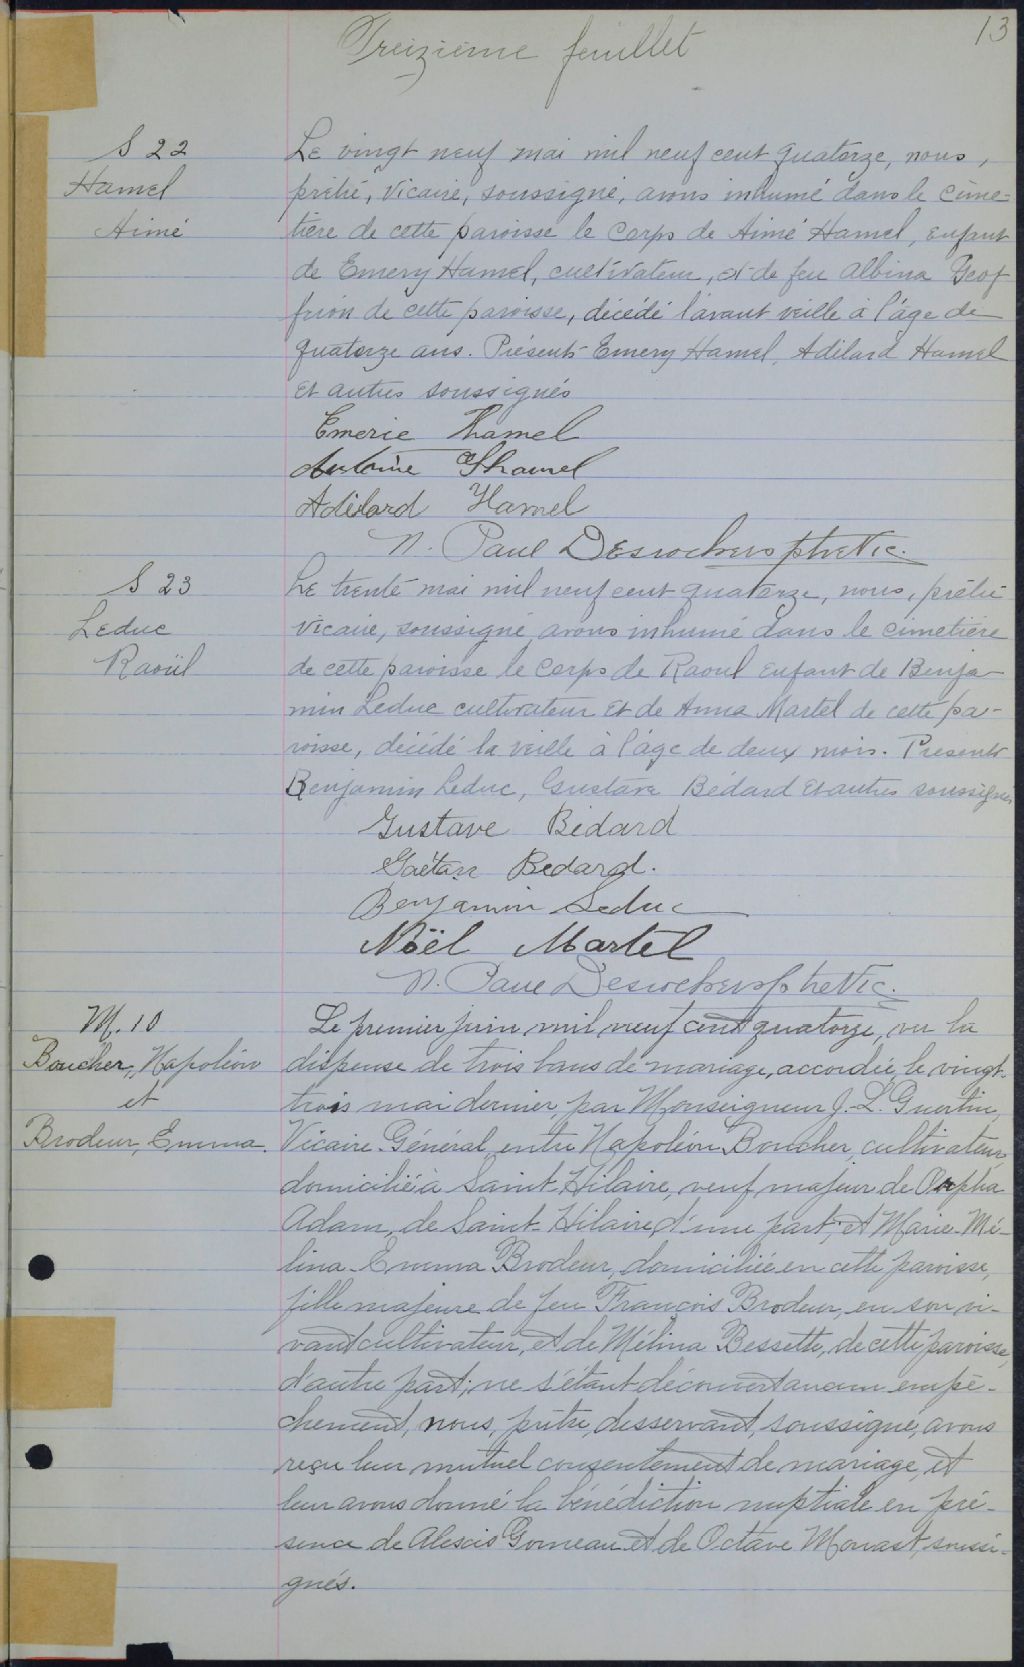 13
Treizième feuillet
S 22
Hamel
Aimé
Le vingt neuf mai mil neuf cent quatorze, nous,
prêtre, Vicaire, soussigné, avons inhumé dans le cime-
tière de cette paroisse le corps de Aimé Hamel, enfant
de Emery Hamel, cultivateur, et de feu Albina Geof
frion de cette paroisse, décédé l'avant veille à l'âge de
quatorze ans. Présents Emery Hamel, Adélard Hamel
et autres soussignés
Emerie Hamel
Antoine Hamel
Adélard Hamel
N. Paul Desrochers ptre Vic.
S 23
Leduc
Raoül
Le trente mai mil neuf cent quatorze, nous, prêtre
vicaire, soussigné, avons inhumé dans le cimetière
de cette paroisse le corps de Raoul enfant de Benja-
min Leduc cultivateur et de Anna Martel de cette pa-
roisse, décédé la veille à l'âge de deux mois. Présents
Benjamin Leduc, Gustave Bédard et autres soussignés
Gustave Bédard
Gaëtan Bedard.
Benjamin Leduc
Noël Martel
N. Paul Desrochers ptre Vic.
M. 10
Boucher, Napoléon
et
Brodeur, Emma.
Le premier juin mil neuf cent quatorze, vu la
dispense de trois bans de mariage, accordée le vingt-
trois mai dernier par Monseigneur J.-L. Guertin,
Vicaire Général, entre Napoléon Boucher, cultivateur,
domicilié à Saint-Hilaire, veuf majeur de Orpha
Adam, de Saint-Hilaire, d'une part, et Marie-Mé-
lina-Emma Brodeur, domiciliée en cette paroisse,
fille majeure de feu François Brodeur, en son vi-
vant cultivateur, et de Mélina Bessette, de cette paroisse,
d'autre part; ne s'étant découvert aucun empê-
chement, nous, prêtre, desservant, soussigné, avons
reçu leur mutuel consentement de mariage, et
leur avons donné la bénédiction nuptiale en pré-
sence de Alexis Gomeau et de Octave Monast, soussi-
gnés.